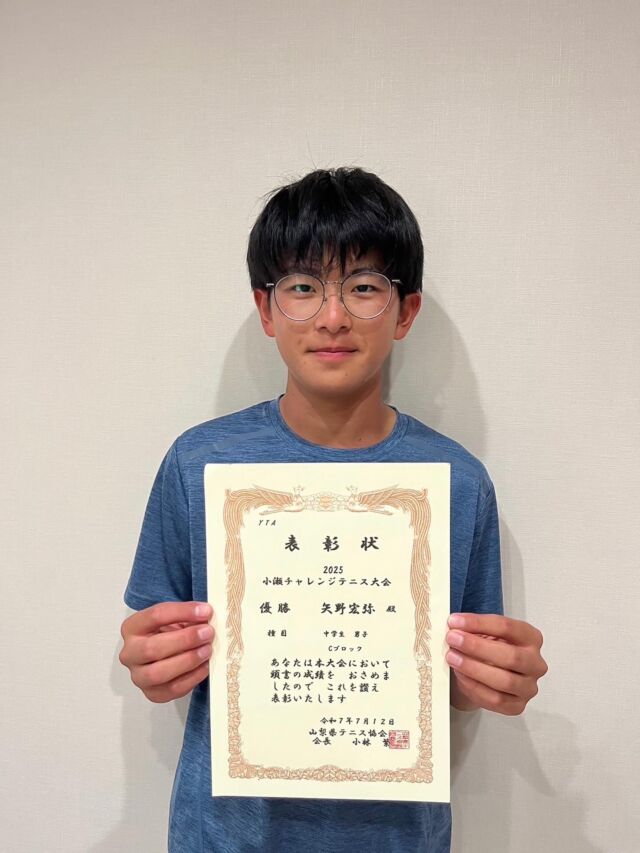 YTA
表彰状
2025
小瀬チャレンジテニス大会
優勝 矢野宏弥 殿
種目 中学生 男子
Cブロック
あなたは本大会において
頭書の成績を おさめま
したので これを讃え
表彰いたします
令和7年7月12日
山梨県テニス協会
会長 小林